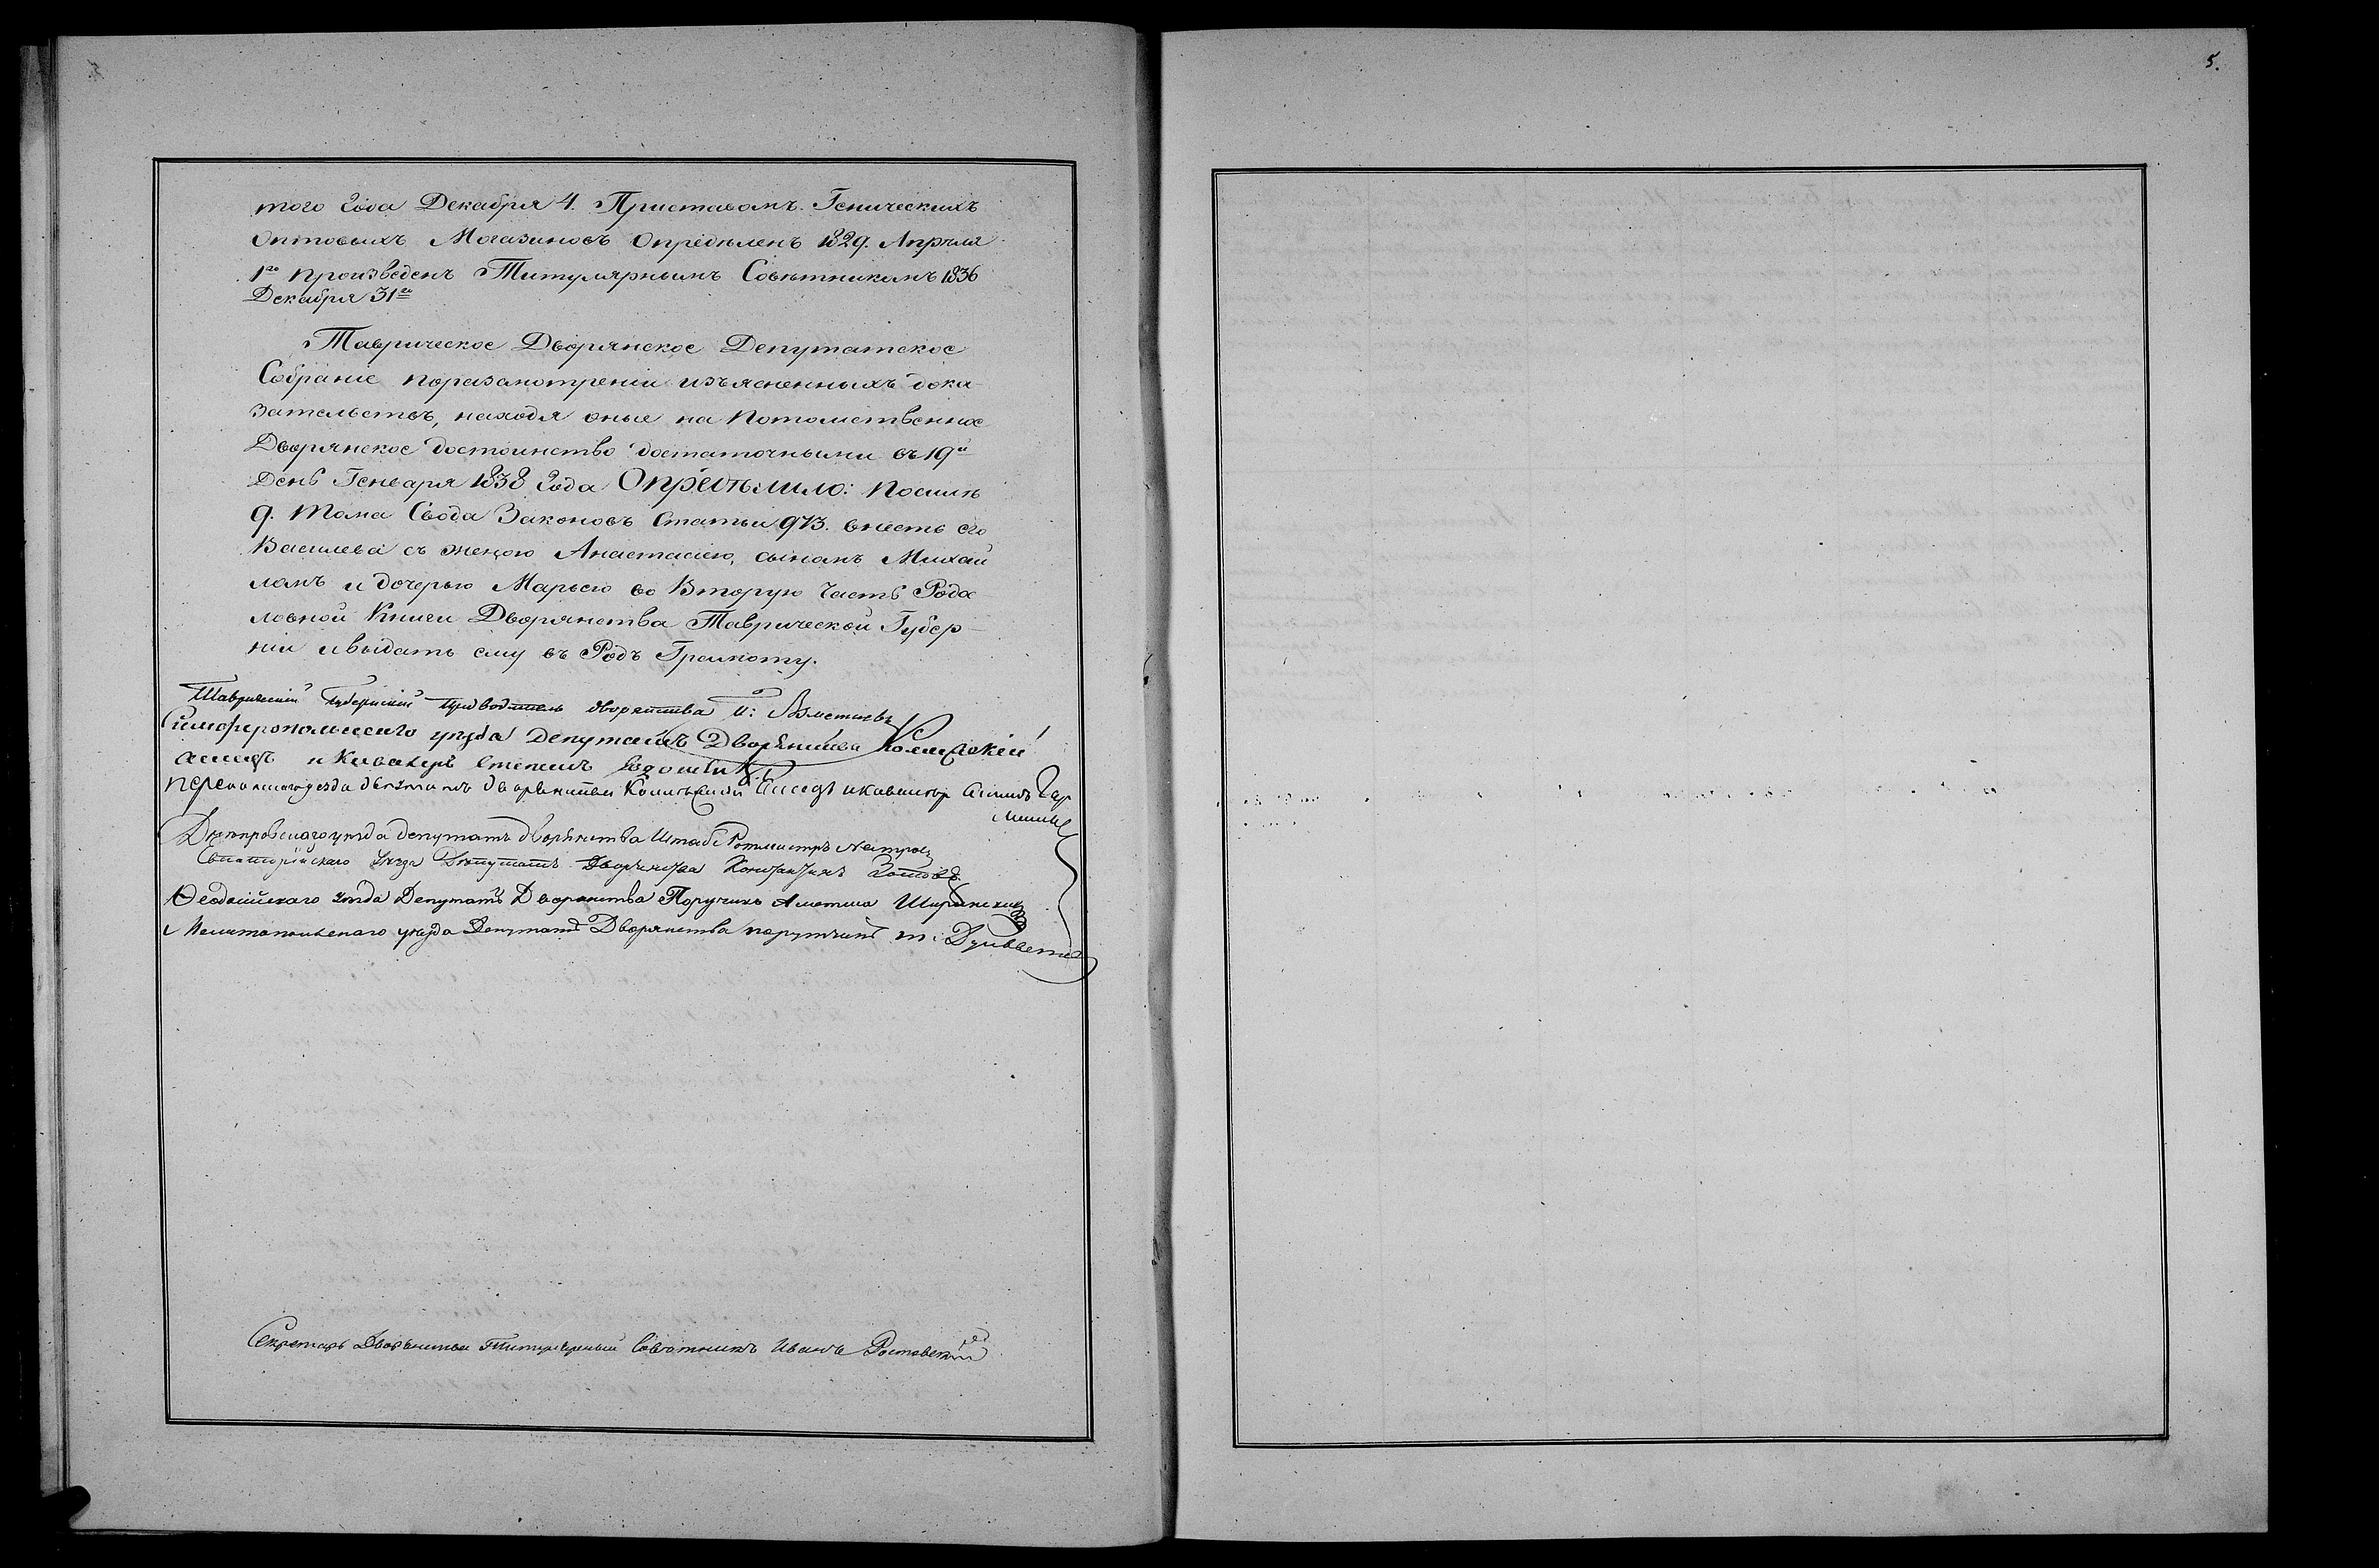 5.
того года Декабря 4. Приставомъ Геническихъ
Оптовыхъ Магазиновъ Определенъ 1829. Апреля
1го произведенъ Титулярнымъ Советникомъ 1836
Декабря 31го
Таврическое Дворянское Депутатское
Собраніе поразсмотреніи изъясненныхъ дока
зательствъ, находя оные на Потомственное
Дворянское достоинство достаточными въ 19й
День Генваря 1838 Года Определило: Посиле
9. Тома Свода Законовъ Статьи 973. внесть его
Василева съ женою Анастасіею, сыномъ Михаи
ломъ и дочерью Марьею во Вторую Часть Родо
ловной Книги Дворянства Таврической Губер-
ніи ивыдать ему въ Родъ Грамоту.
Таврическій Губернскій Предводитель дворянства
Симферопольскаго уезда Депутатъ Дворянства Колл: Скій
Ассесъ и Кавалеръ Степанъ
Перекопскагоуезда депутатъ дворянства Колежской Асесъ икавалер
Днепровскагоуезда депутатъ дворянства Штабс Ротмистръ
Евпаторійскаго Уезда Депутатъ Дворянства Константинъ
Ѳеодосійскаго уезда Депутатъ Дворянства Поручикъ Аметша Ширинскій
Мелитопольскаго уезда Депутатъ Дворянства порутчикъ
Секретарь Дворянства Титулярный Советникъ Иванъ Ростовскій